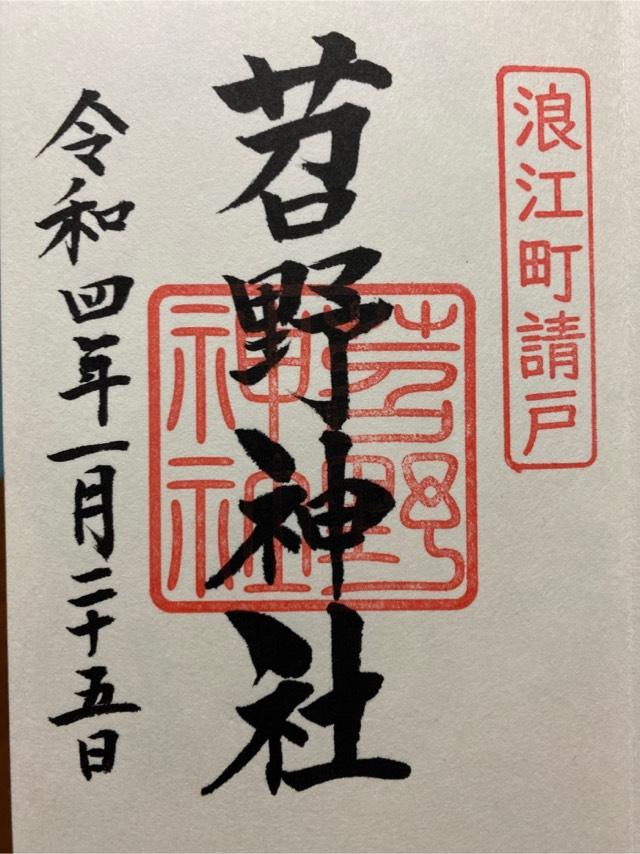 浪江町請戸
苕野神社
苕野
神社
令和四年一月二十五日